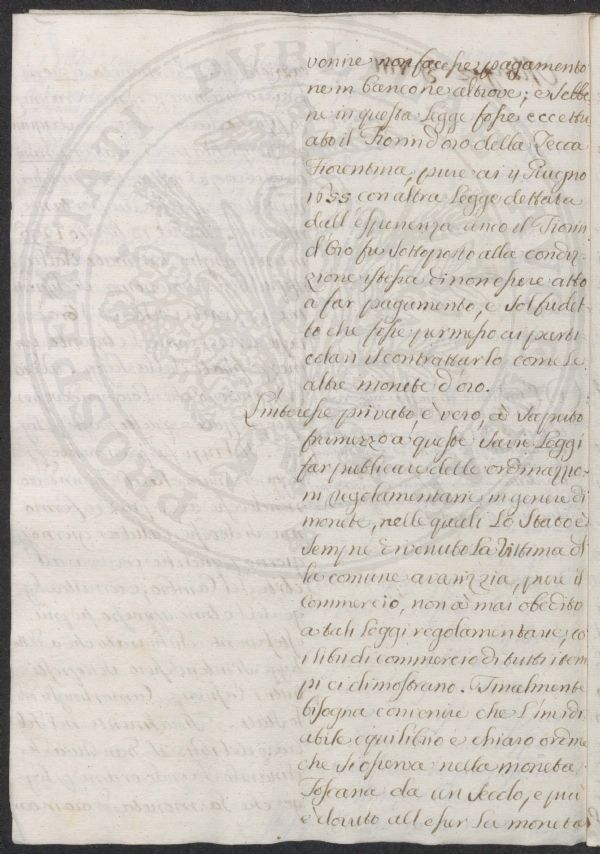 venire non facesse pagamento
ne in banco ne altrove; e sebbe
ne in questa Legge fosse eccettu
ato il Fiorin d'oro della Zecca
Fiorentina, pure ai 4 Giugno
1655 con altra Legge dettata
dall'esperienza anco il Fiorin
d'Oro fu sottoposto alla condi-
zione istessa di non essere atto
a far pagamento, e sol fu det-
to che fosse permesso ai parti
colari il contrattarlo come le
altre monete d'oro.
L'interesse privato, è vero, à saputo
frammezzo a queste savie Leggi
far publicare delle ordinazio-
ni regolamentarie in genere di
monete, nelle quali Lo Stato è
sempre divenuto La Vittima del
la comune avarizia, pure il
Commercio, non à mai obedito
a tali Leggi regolamentarie; co
i libri di commercio di tutti i tem
pi ci dimostrano. Finalmente
bisogna convenire che L'invidi
abile equilibrio e chiaro ordine
che si osserva nella moneta
Toscana da un secolo, e più
è dovuto all'esser La moneta
PROSPERITATI PVBLICAE